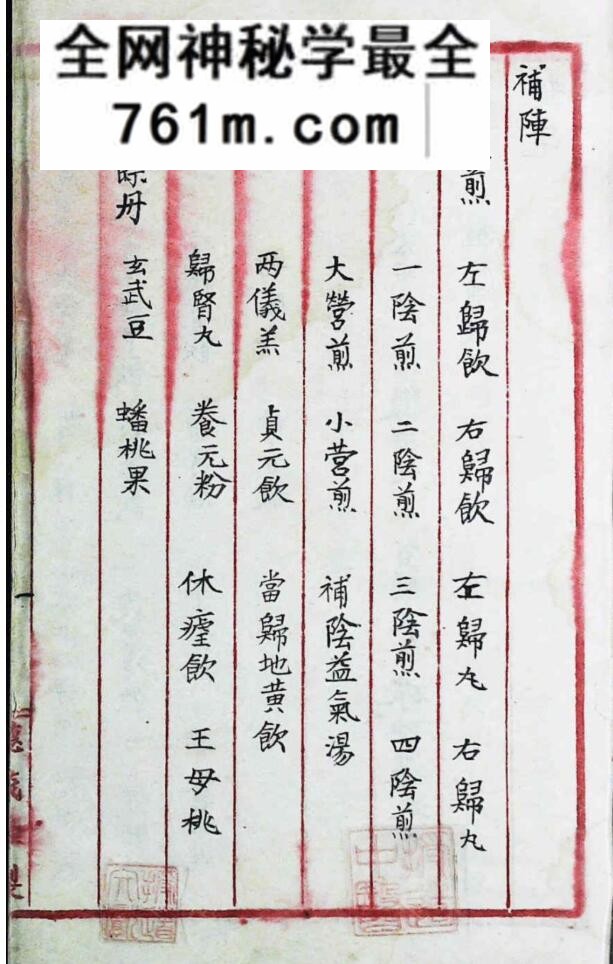 全网神秘学最全
761m.com
補陣
煎 左歸飲 右歸飲 左歸丸 右歸丸
一陰煎 二陰煎 三陰煎 四陰煎
大營煎 小营煎 補陰益氣湯
两儀羔 貞元飲 當歸地黃飲
歸腎丸 養元粉 休瘧飲 王母桃
丹 玄武豆 蟠桃果